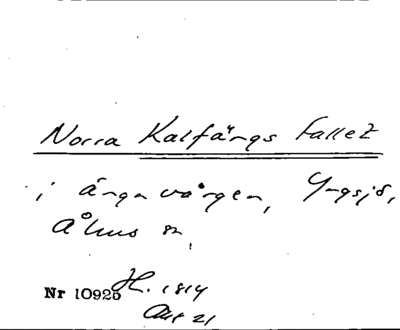 Norra Kalfängs fallet
i Ängavången, Yngsjö,
Åhus sn,
Nr 10925 H. 1814
Akt 21